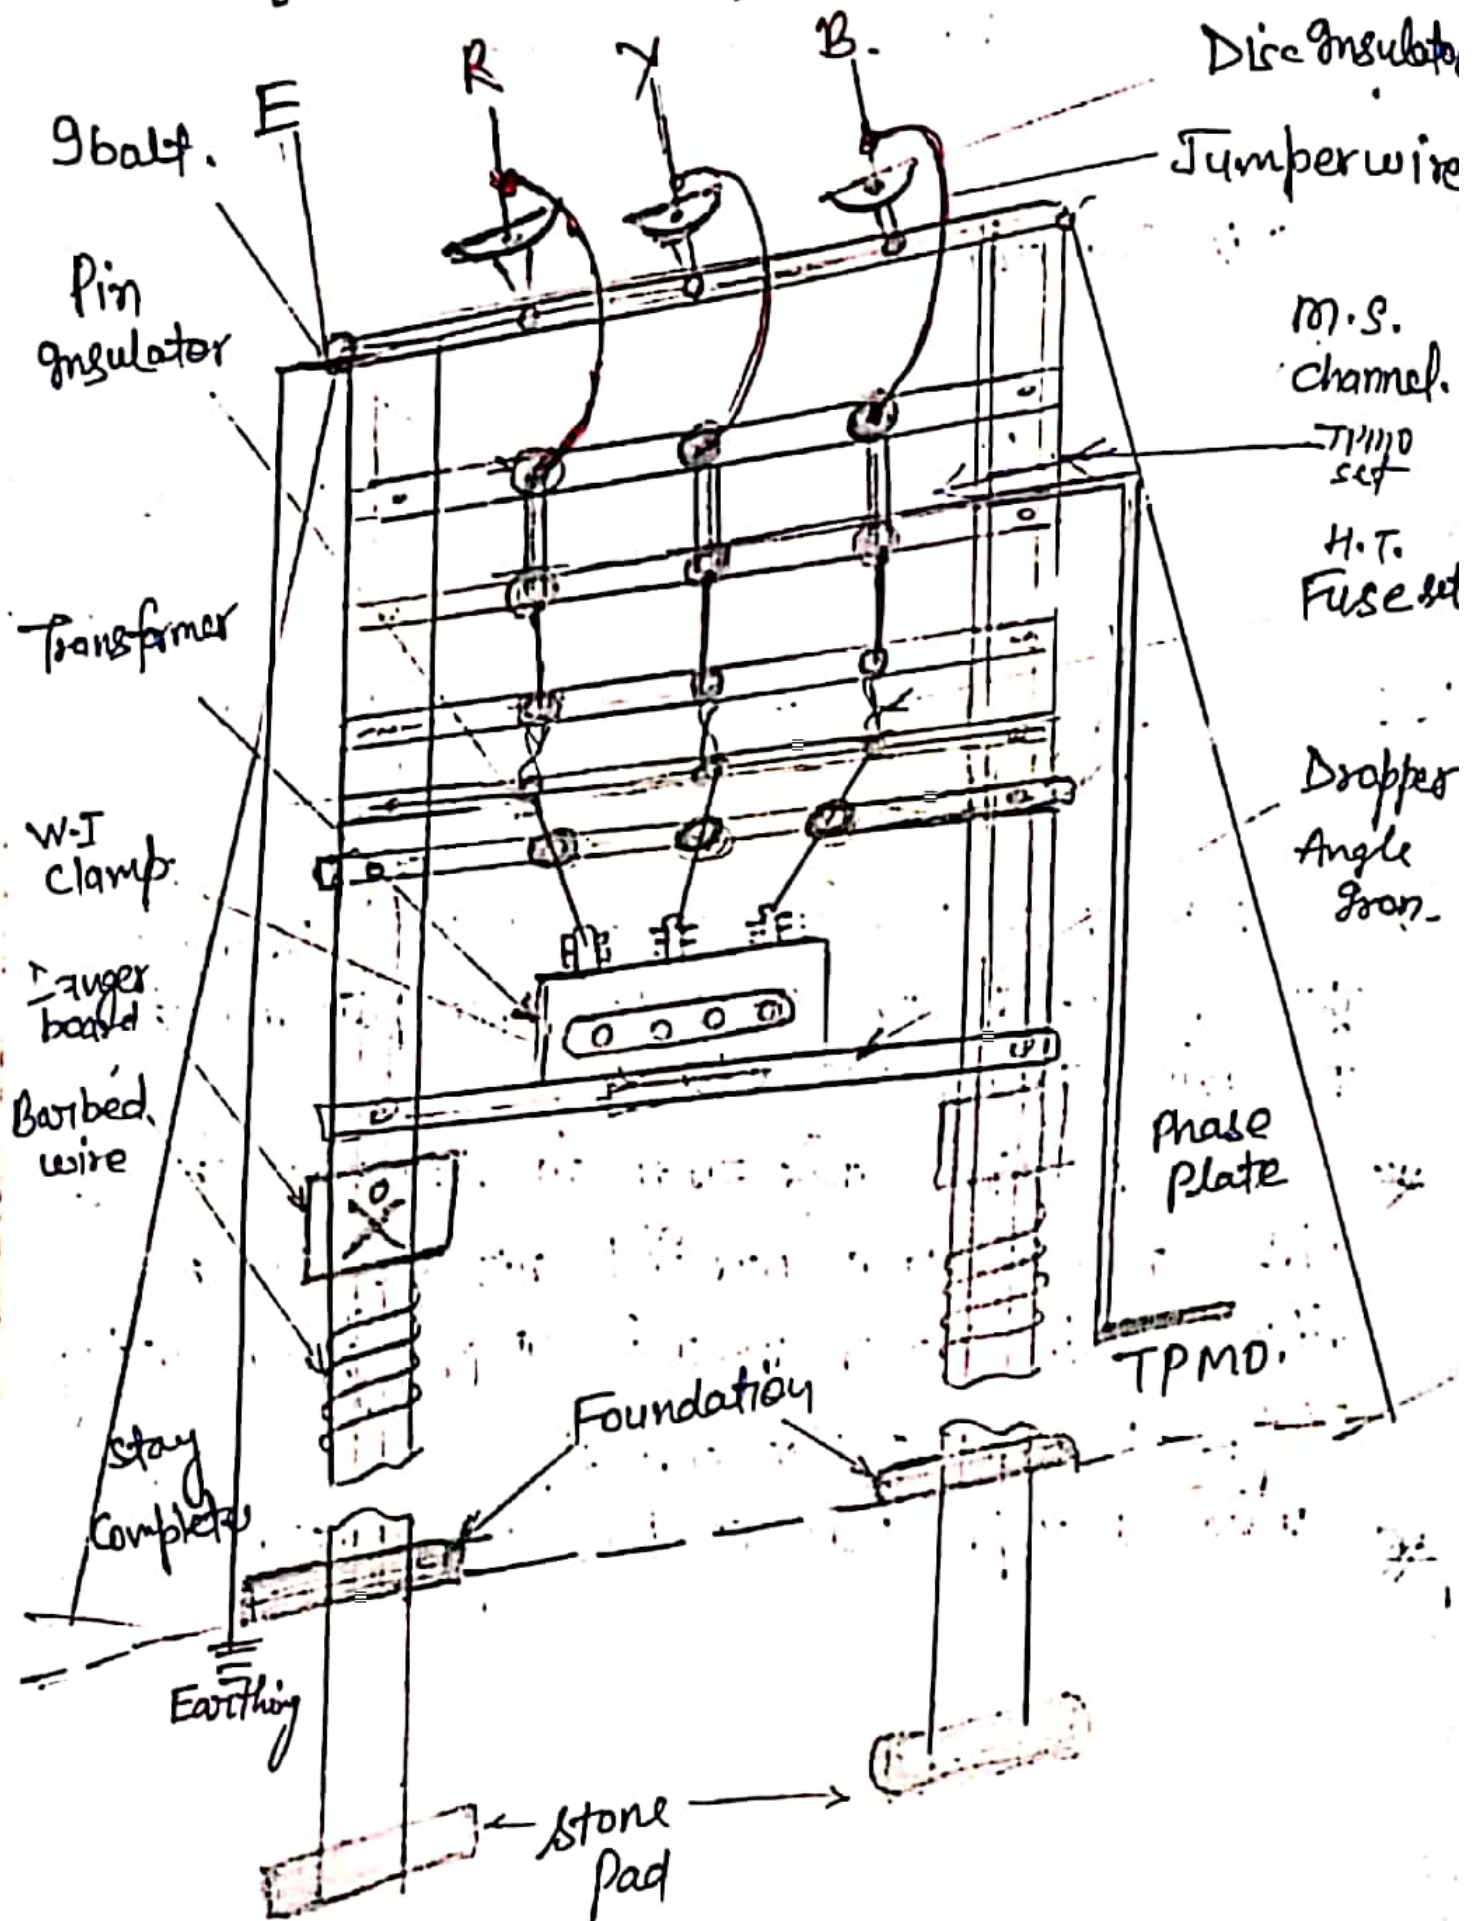 R
Y
B.
E
Disc Insulator
Jumper wire
Ibalt.
Pin
Insulator
M.S.
Channel.
TPMO
set
H.T.
Fuse set
Transformer
Dropper
Angle
Iron-
W-I
Clamp
Danger
board
Barbed
wire
Phase
Plate
TPMO.
Foundation
Stay
Complete
Earthing
Stone
Pad